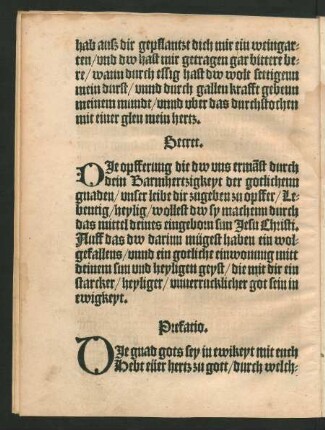 hab auß dir gepflantzt dich mir ein weingar-
ten/vnd dw hast mir getragen gar bittere be-
re/wann durch essig hast dw wole settigenn
mein durst/vnnd durch gallen krafft gebenn
meinem munde/vnnd vber das durchstochen
mit einer glen mein hertz.
Secret.
DIe opfferung die dw vns ermāst durch
dein Barmhertzigkeyt der gotlichenn
gnaden/vnser leibe dir zugeben zu opffer/Le-
bentig/heylig/wollest dw sy machenn durch
das mittel deines eingeborn sun Jesu Christi.
Auff das dw darinn mügest haben ein wol-
gefallens/vnnd ein gotliche einwonung mit
deinem sun vnd heyligen geyst/die mit dir ein
starcker/heyliger/vnuerrucklicher got sein in
ewigkeyt.
Prefatio.
DIe gnad gots sey in ewikeyt mit euch
Hebt eüer hertz zu gott/durch welch-